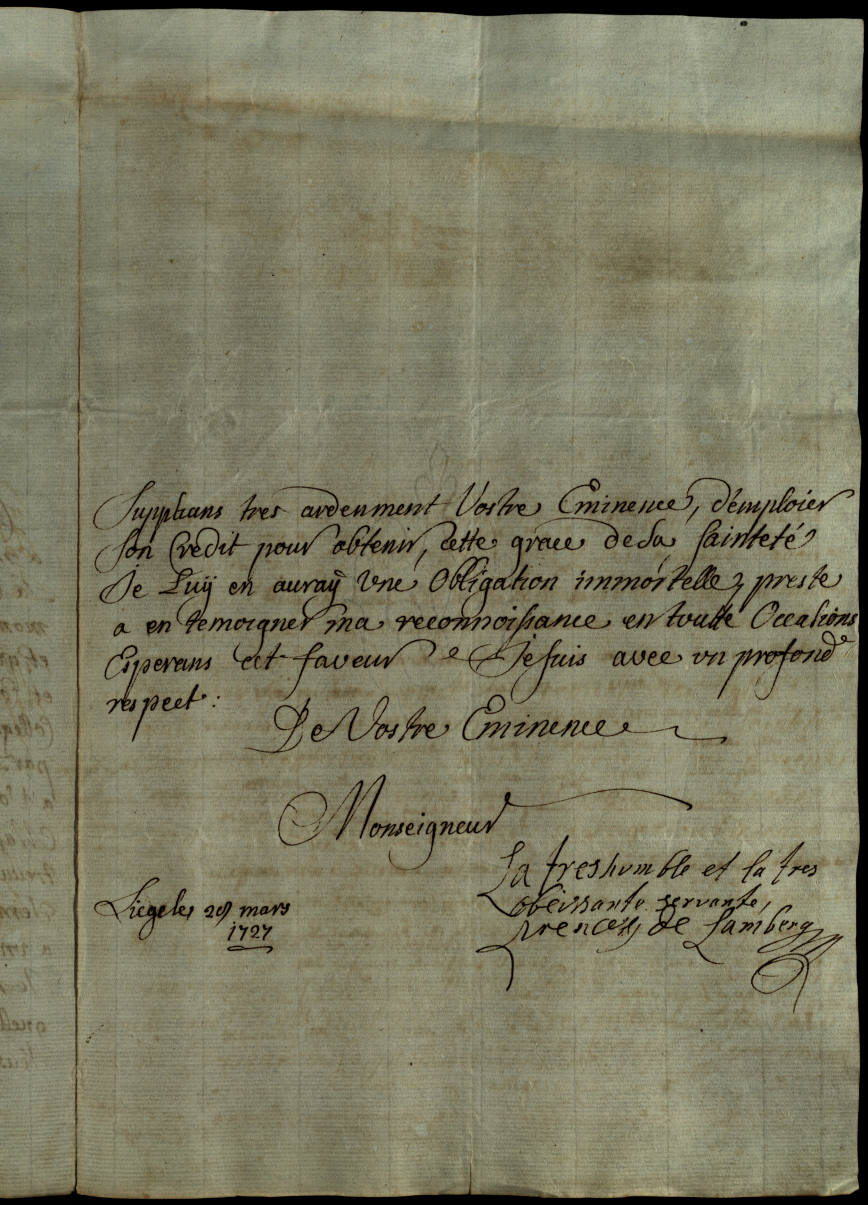 Supplians tres ardemment Vostre Eminence, d'emploier
son Credit pour obtenir, cette grace de sa sainteté
Je Luÿ en auraÿ une Obligation immortelle, preste
a en temoigner ma reconnoissance en toutte Occasions
Esperans cet faveur Je suis avec un profond
respect:
De Vostre Eminence
Monseigneur
La treshumble et la tres
obeissante servante,
Liege le, mars
1727
de Lamberg